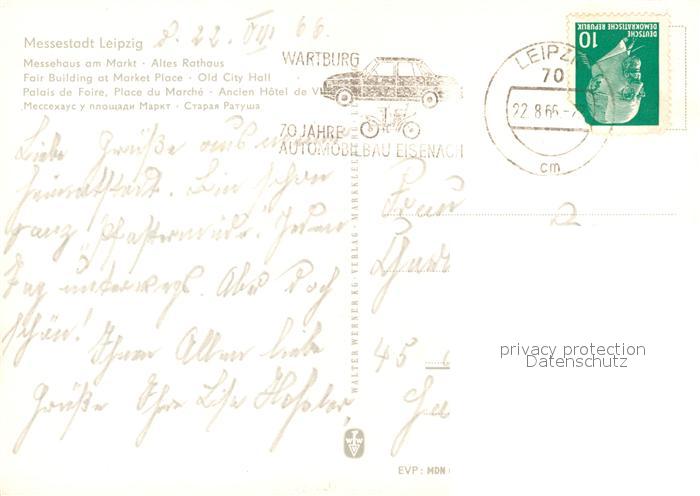 Messestadt Leipzig
d. 22. VIII 66.
Messehaus am Markt · Altes Rathaus
Fair Building at Market Place · Old City Hall
Palais de Foire, Place du Marché · Ancien Hôtel de
Мессехаус у площади Маркт · Старая Ратуша
WARTBURG
70 JAHRE
AUTOMOBILBAU EISENACH
LEIPZIG
70
22.8.66
cm
DEUTSCHE
DEMOKRATISCHE REPUBLIK
10
Liebe Grüße aus meiner
Heimatstadt. Bin schon
ganz "pflastermüde". Jeden
Tag unterwegs. Aber doch
schön!
Ihnen Allen liebe
Grüße Ihre Lisa
Frau
45
WALTER WERNER KG · VERLAG · MARKKLEEBERG
EVP: MDN
privacy protection
Datenschutz